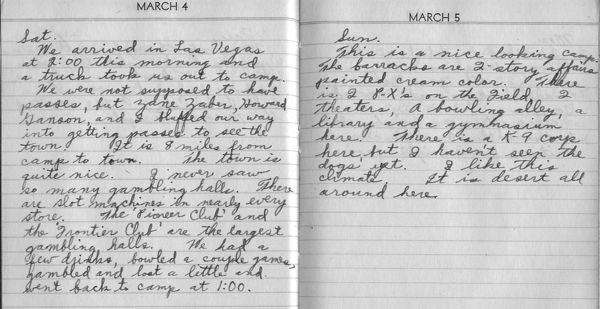 MARCH 4
Sat.
We arrived in Las Vegas
at 2:00 this morning and
a truck took us out to camp.
We were not supposed to have
passes, but Zane Zaber, Howard
Ganson, and I bluffed our way
into getting passes to see the
town It is 8 miles from
camp to town. The town is
quite nice. I never saw
so many gambling halls. There
are slot machines in nearly every
store. The 'Pioneer Club' and
the 'Frontier Club' are the largest
gambling halls. We had a
few drinks, bowled a couple games,
gambled and lost a little and
went back to camp at 1:00.
MARCH 5
Sun.
This is a nice looking camp.
The barracks are 2-story affairs
painted cream color. There
is 2 P.X's on the Field, 2
theaters, A bowling alley, a
library and a gymnasium
here. There is a K-9 corp
here, but I haven't seen the
dogs yet. I like this
climate It is desert all
around here